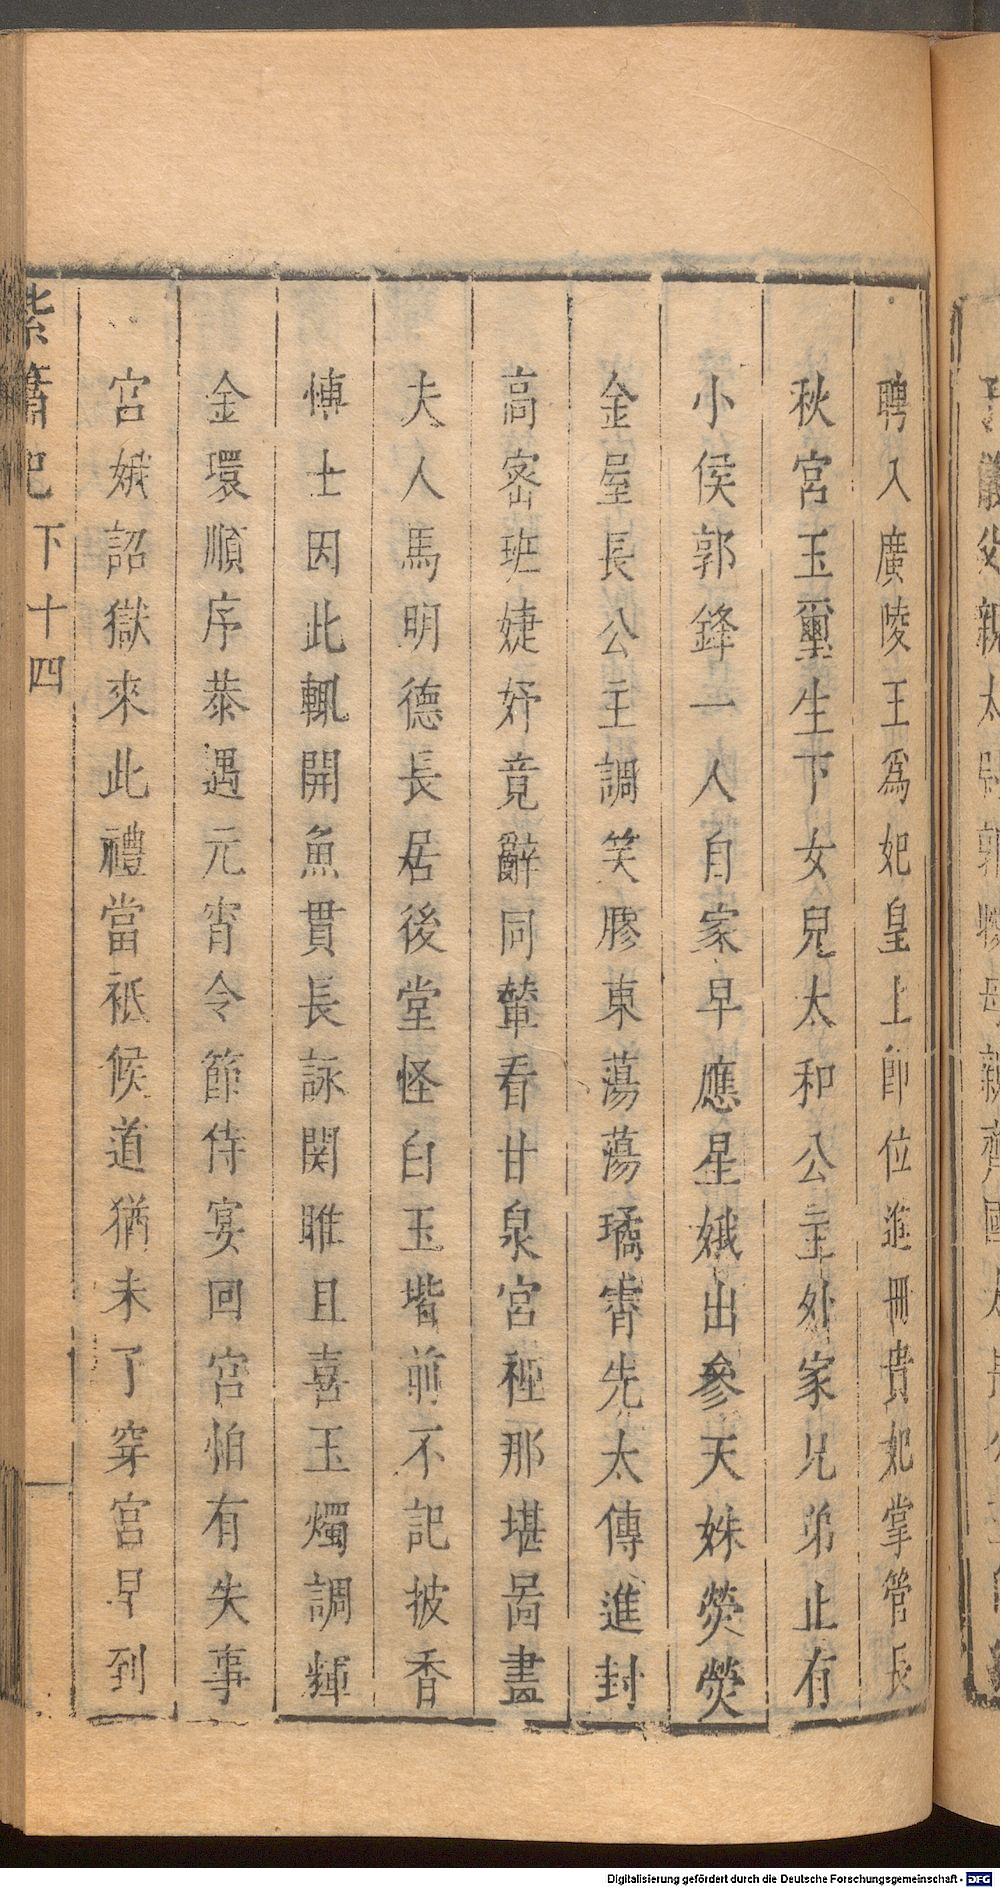 聘入廣陵王爲妃皇上卽位進冊貴妃掌管長
秋宮玉璽生下女兒太和公主外家兄弟止有
小侯郭鋒一人自家早應星娥出參天姝熒熒
金屋長公主調笑膠東蕩蕩璚霄先太傳進封
高密班婕妤竟辭同輦看甘泉宮裡那堪啚畫
夫人馬明德長居後堂怪白玉堦前不記披香
慱士因此輒開魚貫長詠関睢且喜玉燭調輝
金環順序恭遇元宵令節侍宴回宮怕有失事
宮娥詔獄來此禮當祗候道猶未了穿宮早到
紫簫記下十四
Digitalisierung gefördert durch die Deutsche Forschungsgemeinschaft - DFG